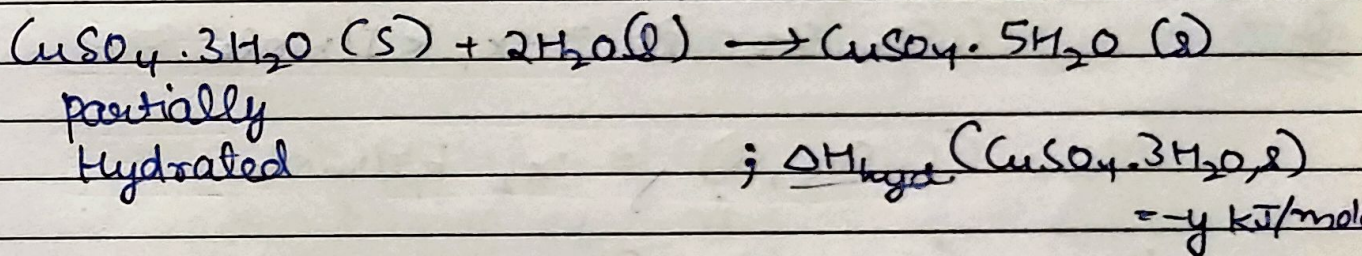 CuSO4.3H2O (S) + 2H2O(l) → CuSO4.5H2O (s)
partially
Hydrated ; ΔHhyd (CuSO4.3H2O,s)
= -y kJ/mol